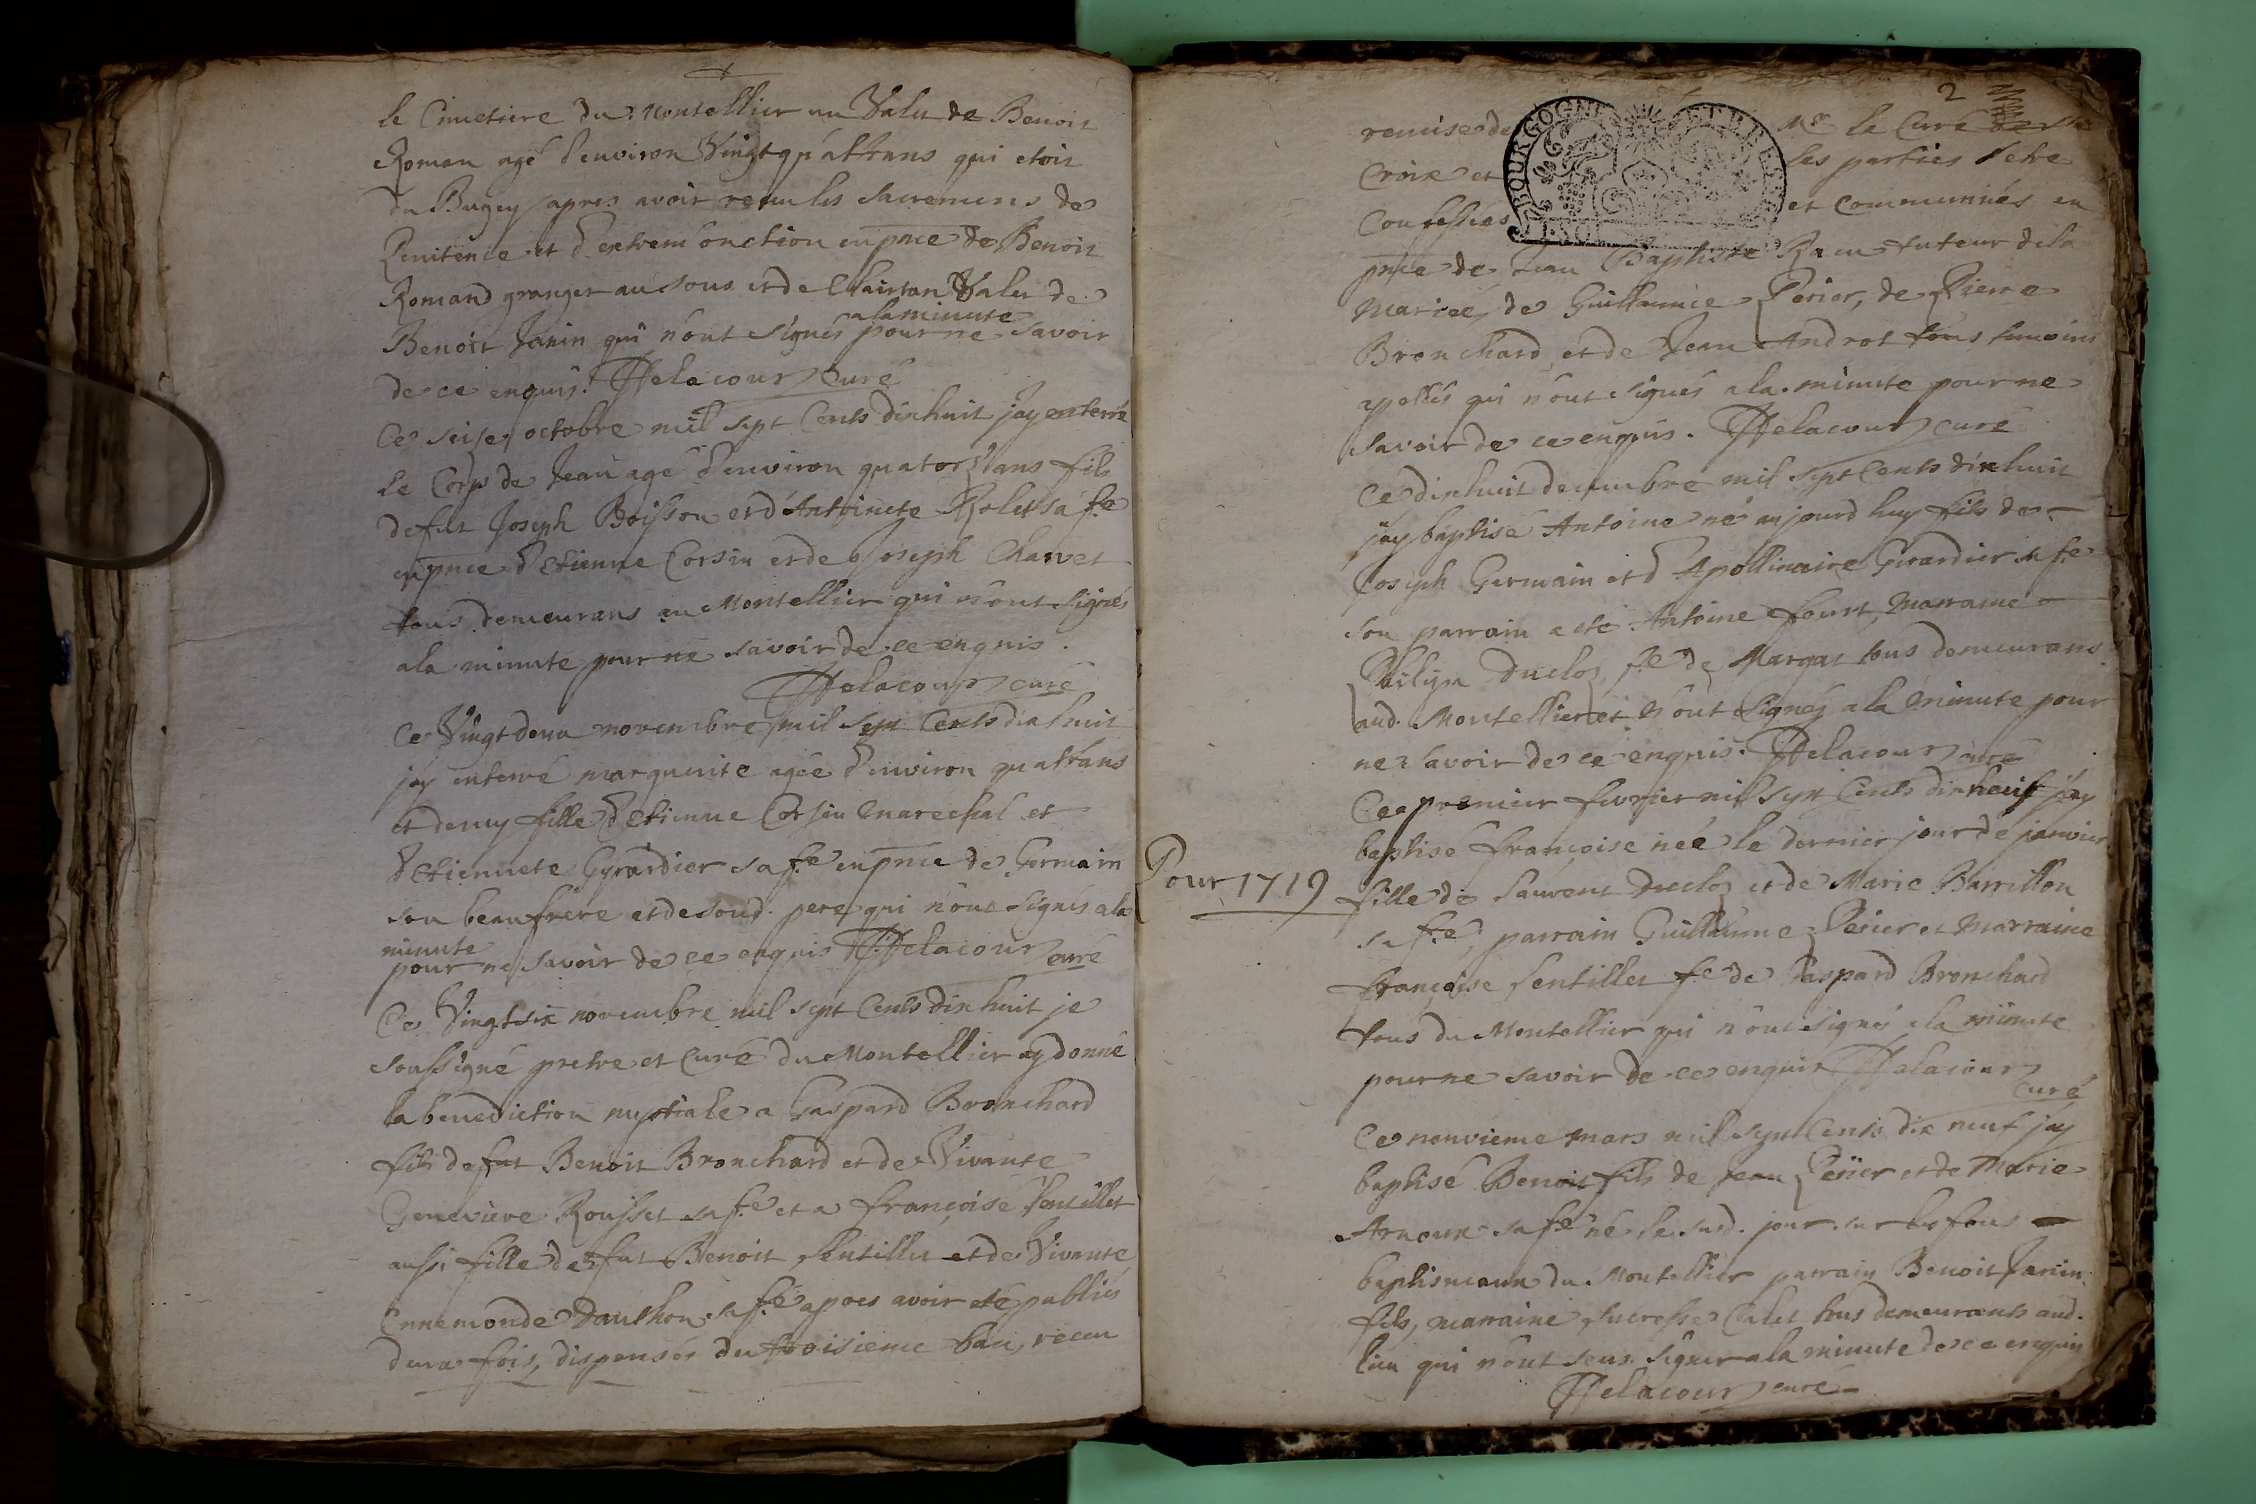 le Cimetiere du Montellier un Valet de Benoit
Roman agé d'environ Vingt quattrans qui etoit
du Bugey apres avoir receu les sacremens de
Penitence et d'extrem'onction en pnce de Benoit
Romand granger au sous et de Valet de
a la minute
Benoit Janin qui n'ont signés pour ne savoir
de ce enquis. Delacour curé
Ce seise octobre mil sept Cents dixhuit j'ay enterré
le Corps de Jean agé d'environ quatorz'ans fils
de fut Joseph Boisson et d'Antoinete Rolet sa fe
en pnce d'Etienne Corsin et de Joseph Charvet
tous demeurans au Montellier qui n'ont signés
a la minute pour ne savoir de ce enquis.
Delacour curé
Ce Vingt deux novembre mil sept Cents dixhuit
j'ay enterré marguerite agée d'environ quattrans
et demy fille d'Etienne Corsin marechal et
d'Etiennete Gyrardier sa fe en pnce de Germain
son beaufrere et de soud. pere qui n'ont signés a la
minute
pour ne savoir de ce enquis Delacour curé
Ce Vingtsix novembre mil sept Cents dixhuit je
soussigné pretre et Curé du Montellier ay donné
la benediction nuptiale a Gaspard Bronchard
fils de fut Benoit Bronchard et de Vivante
Genevieve Rousset sa fe et a françoise Sentillet
aussi fille de fut Benoit Sentillet et de Vivante
Ennemonde Dauthon sa fe apres avoir eté publiés
deux fois, dispensés du troisieme ban, receu
2
remise de Mr le Curé de Ste
Croix et les parties s'etre
Confessées et communiées en
pnce de Jean Baptiste Racu tuteur de la
mariée, de Guillaume Perier, de Pierre
Bronchard et de Jean Androt tous temoins
apellés qui n'ont signés a la minute pour ne
savoir de ce enquis. Delacour curé
Ce dixhuit decembre mil sept Cents dixhuit
j'ay baptisé Antoine né aujourd'huy fils de
Joseph Germain et d'Apollinaire Girardier sa fe
son parrain a eté Antoine fourt, Marraine
Philipa Duclos fe de Margat tous demeurans
aud. Montellier et n'ont signés a la minute pour
ne savoir de ce enquis. Delacour curé
Ce premier fevrier mil sept Cents dixneuf j'ay
baptisé françoise née le dernier jour de janvier
Pour 1719
fille de Laurent Duclos et de Marie Barrillon
sa fe, parrain Guillaume Perier et Marraine
françoise Sentillet fe de Gaspard Bronchard
tous du Montellier qui n'ont signés a la minute
pour ne savoir de ce enquis Delacour
curé
Ce neuvieme mars mil sept Cents dix neuf j'ay
baptisé Benoit fils de Jean Perier et de Marie
Arnoux sa fe né le susd. jour sur les fons
baptismaux du Montellier parrain Benoit Janin
fils, marraine Calet tous demeurants aud.
lieu qui n'ont seus signer a la minute de ce enquis
Delacour curé